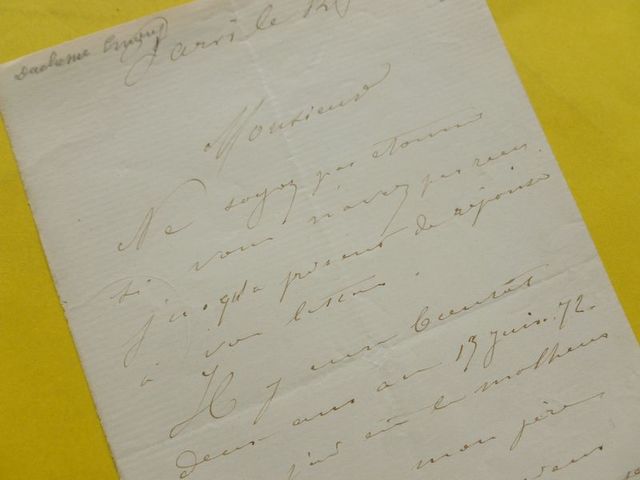 Duchesne
Paris le
Monsieur
Ne soyez pas étonné
si vous n'avez pas reçu
jusqu'à présent de réponse
à vos lettres.
Il y aura bientôt
deux ans au 13 juin 72.
j'ai eu le malheur
mon père